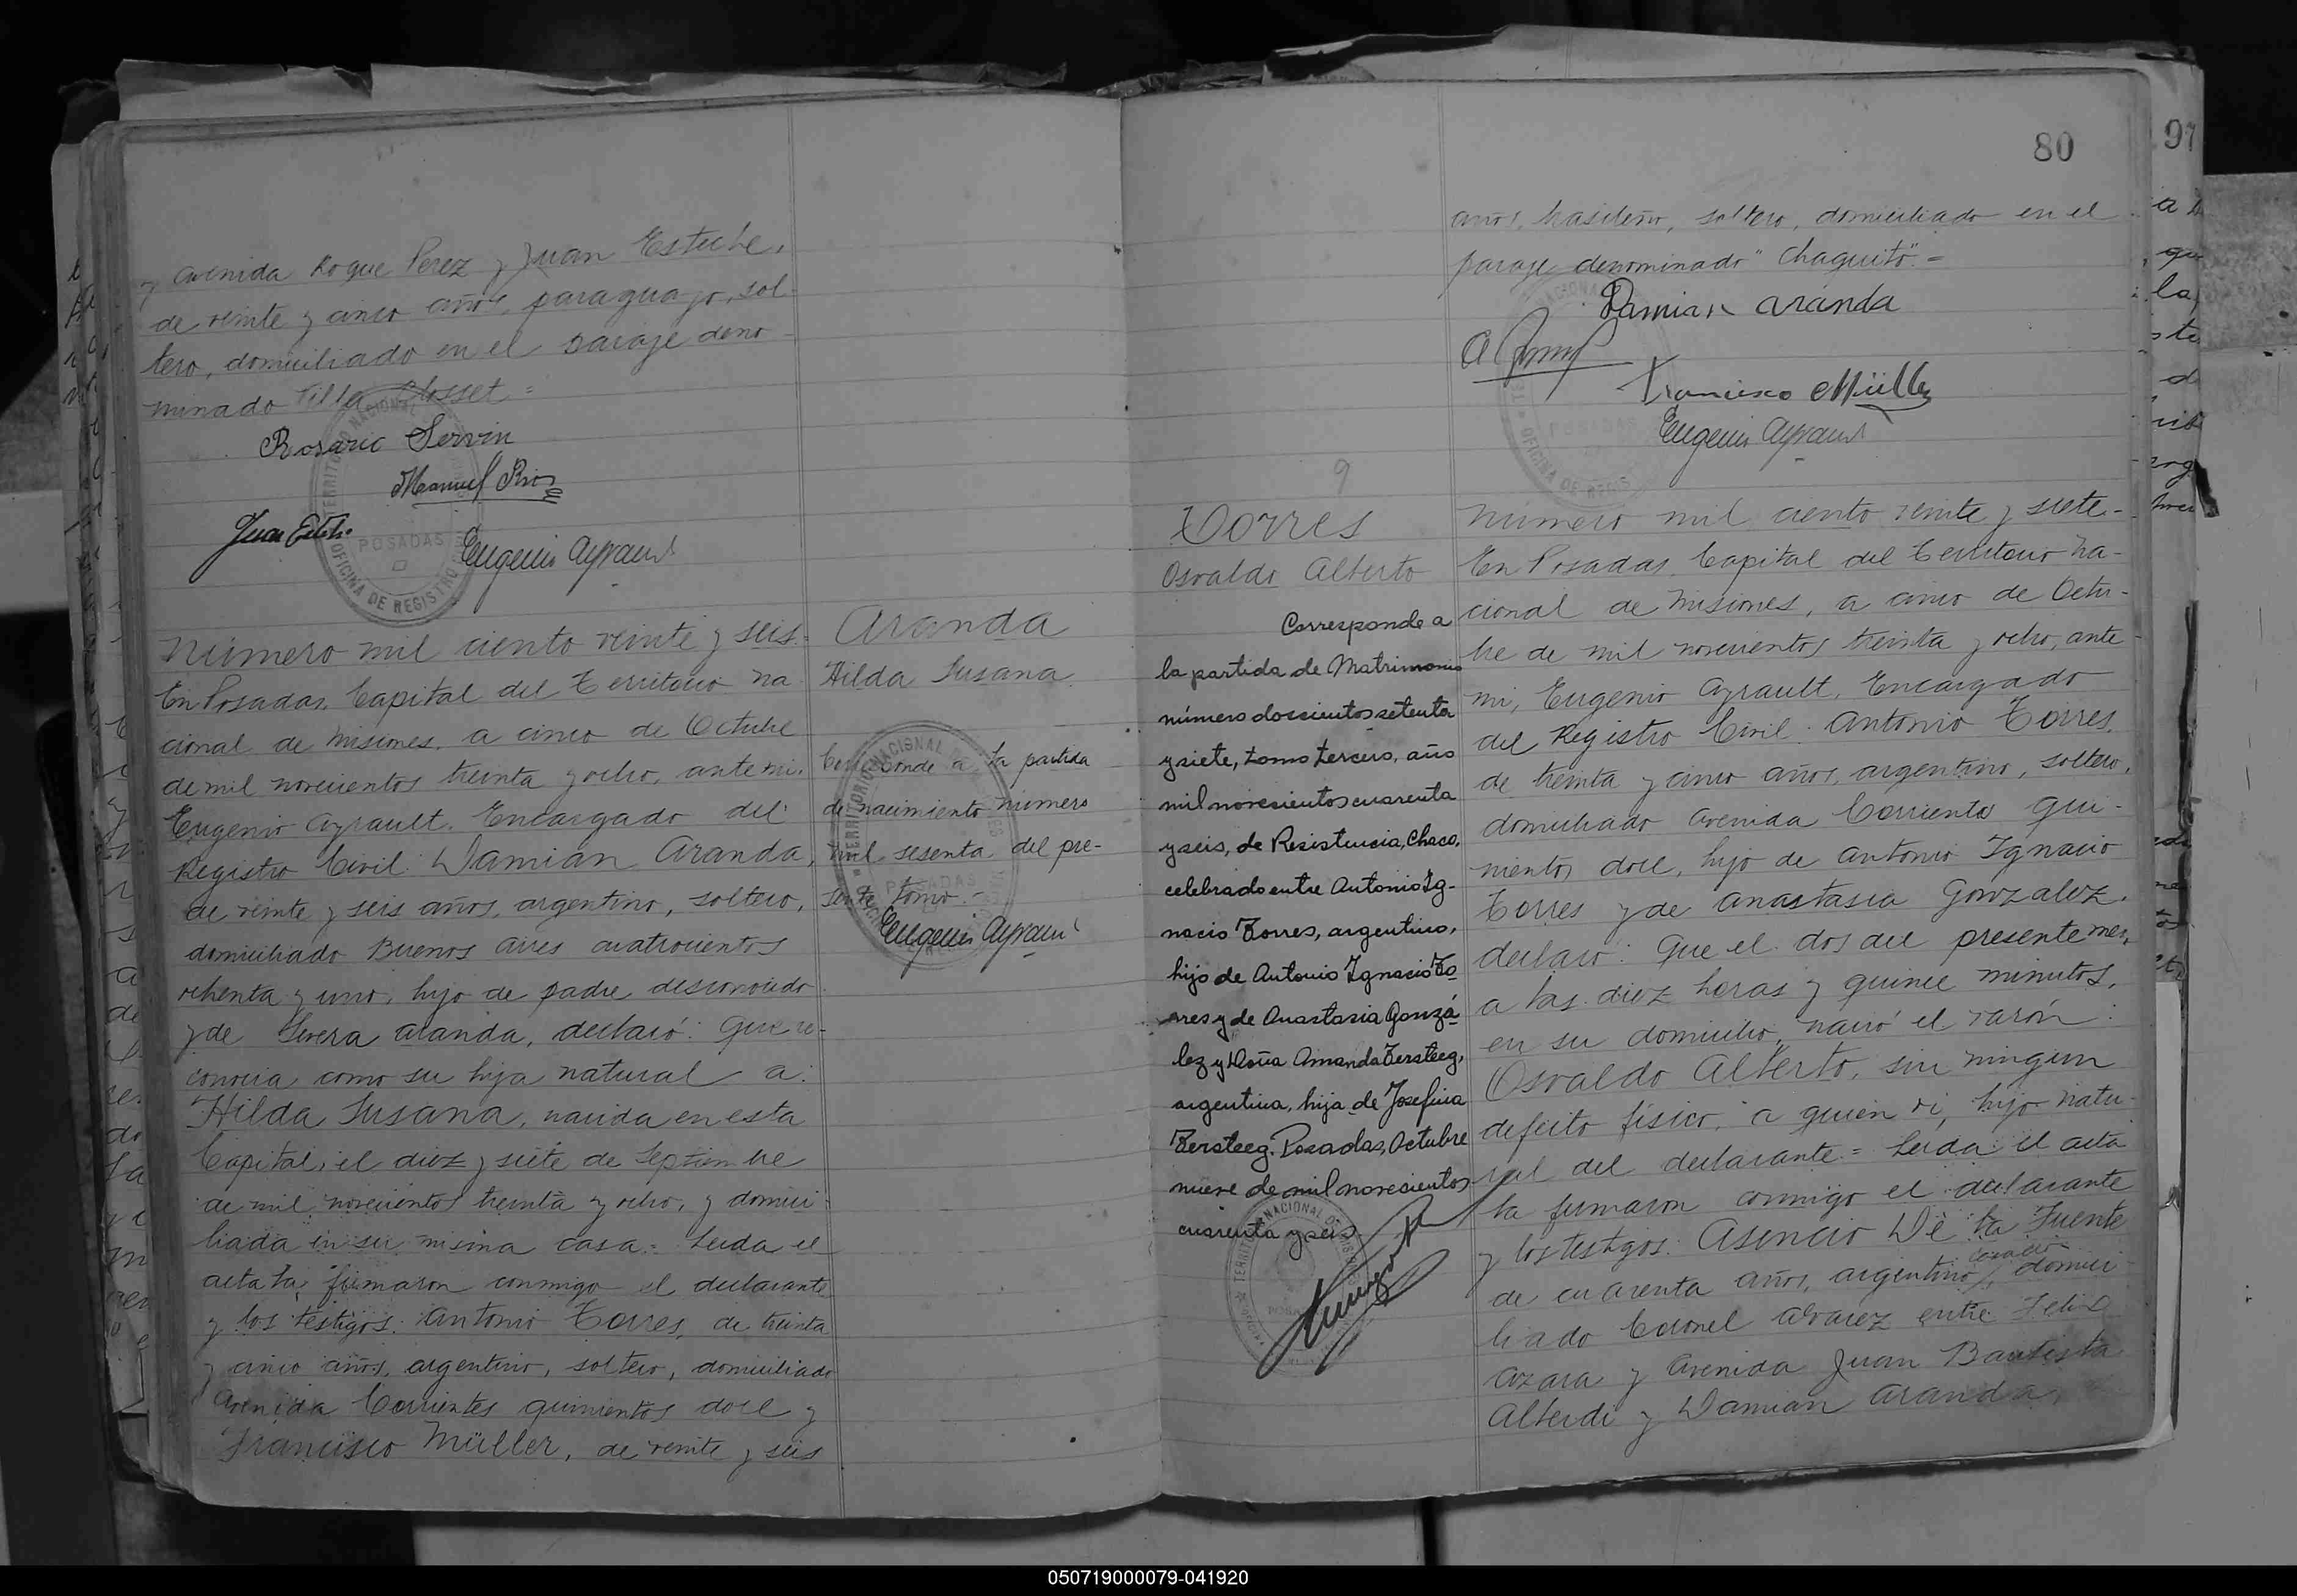 y Avenida Roque Perez y Juan Esteche,
de veinte y cinco años, paraguayo, sol-
tero, domiciliado en el paraje deno-
minado Villa Blosset =
Rosario Servin
Manuel Rios
Juan Esteche
Eugenio Ayrault
TERRITORIO NACIONAL
POSADAS
OFICINA DE REGISTRO
Número mil ciento veinte y seis=
En Posadas, Capital del Territorio Na-
cional de Misiones, a cinco de Octubre
de mil novecientos treinta y ocho, ante mi,
Eugenio Ayrault, Encargado del
Registro Civil: Damian Aranda,
de veinte y seis años, argentino, soltero,
domiciliado Buenos Aires cuatrocientos
ochenta y uno, hijo de padre desconocido
y de Severa Aranda, declaró: Que re-
conocia como su hija natural a:
Hilda Susana, nacida en esta
Capital, el diez y siete de Septiembre
de mil novecientos treinta y ocho, y domici-
liada en su misma casa= Leida el
acta la firmaron conmigo el declarante
y los testigos: Antonio Torres, de treinta
y cinco años, argentino, soltero, domiciliado
Avenida Corrientes quinientos doce y
Francisco Müller, de veinte y seis
Aranda
Hilda Susana
Corresponde a la partida
de nacimiento número
mil sesenta del pre-
sente tomo.-
Eugenio Ayrault
80
97
años, brasileño, soltero, domiciliado en el
paraje denominado "Chaquito".=
Damian Aranda
Francisco Müller
Eugenio Ayrault
9
Torres
Osvaldo Alberto
Corresponde a
la partida de Matrimonio
número doscientos setenta
y siete, tomo tercero, año
mil novecientos cuarenta
y seis, de Resistencia, Chaco,
celebrado entre Antonio Ig-
nacio Torres, argentino,
hijo de Antonio Ignacio To-
rres y de Anastasia Gonzá-
lez y Doña Amanda Tersteeg,
argentina, hija de Josefina
Tersteeg. Posadas, Octubre
nueve de mil novecientos
cuarenta y seis.
Número mil ciento veinte y siete-
En Posadas, Capital del Territorio Na-
cional de Misiones, a cinco de Octu-
bre de mil novecientos treinta y ocho, ante
mi, Eugenio Ayrault, Encargado
del Registro Civil: Antonio Torres,
de treinta y cinco años, argentino, soltero,
domiciliado Avenida Corrientes qui-
nientos doce, hijo de Antonio Ignacio
Torres y de Anastasia Gonzalez,
declaró: Que el dos del presente mes,
a las diez horas y quince minutos,
en su domicilio, nació el varón:
Osvaldo Alberto, sin ningun
defecto fisico, a quien vi, hijo natu-
ral del declarante= Leida el acta
la firmaron conmigo el declarante
y los testigos: Asencio De la Fuente
de cuarenta años, argentino, casado, domici-
liado Coronel Alvarez entre Felix
Azara y Avenida Juan Bautista
Alberdi y Damian Aranda,
050719000079-041920